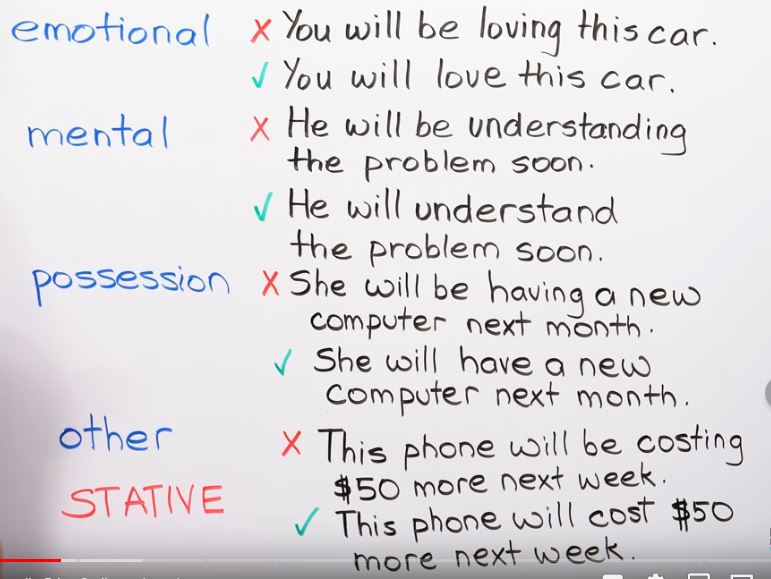 emotional X You will be loving this car.
✓ You will love this car.
mental X He will be understanding
the problem soon.
✓ He will understand
the problem soon.
possession X She will be having a new
computer next month.
✓ She will have a new
computer next month.
other X This phone will be costing
$50 more next week.
STATIVE
✓ This phone will cost $50
more next week.